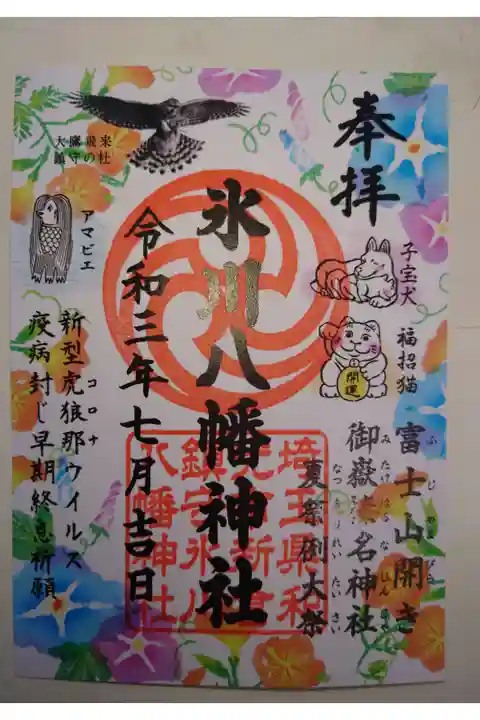 奉拝
子宝犬
福招猫
開運
富士山開き
御嶽榛名神社
夏祭例大祭
氷川八幡神社
令和三年七月吉日
大鷹飛来
鎮守の杜
アマビエ
新型虎狼那ウイルス
コロナ
疫病封じ早期終息祈願
埼玉県和
光市新倉
鎮守氷川
八幡神社